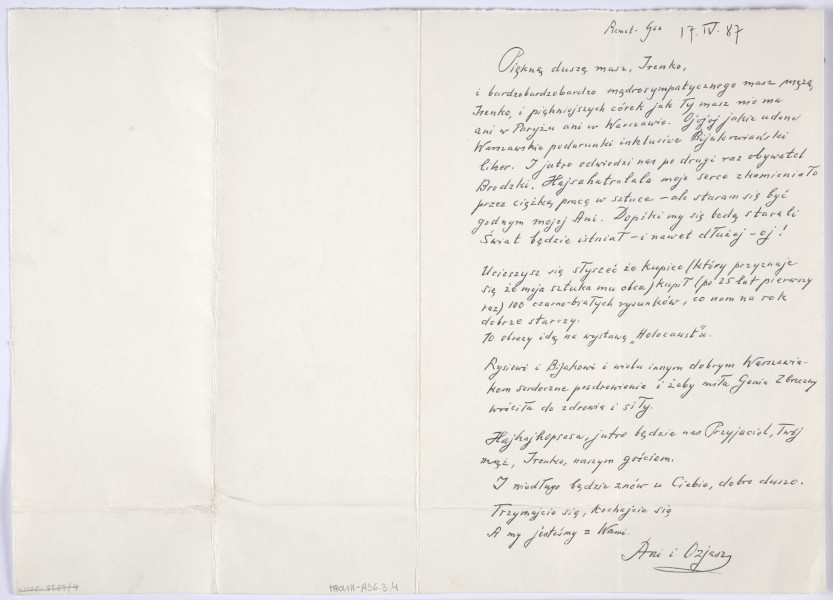 Ramat-Gan 17.IV.87
Piękną duszę masz, Irenko,
i bardzobardzobardzo mądrosympatycznego masz męża,
Irenko, i piękniejszych córek jak Ty masz nie ma
ani w Paryżu ani w Warszawie. Ojojoj jakie udane
Warszawskie podarunki inklusive Bijakowiański
likor. I jutro odwiedzi nas po drugi raz obywatel
Brodzki. Hajsahatralala moje serce skamieniało
przez ciężką pracę w sztuce – ale staram się być
godnym mojej Ani. Dopóki my się będą starali
Świat będzie istniał – i nawet dłużej – oj!
Ucieszysz się słyszeć że kupiec (który przyznaje
się że moja sztuka mu obca) kupił (po 25 lat pierwszy
raz) 100 czarno-białych rysunków, co nam na rok
dobrze starczy.
10 obrazy idą na wystawę „Holocaust"u.
Rysiowi i Bijakowi i wielu innym dobrym Warszawia-
kom serdeczne pozdrowienie i żeby miła Genia Zbrzezny
wróciła do zdrowia i siły.
Hajhajhopsasa, jutro będzie nas Przyjaciel, Twój
mąż, Irenko, naszym gościem.
I niedługo będzie znów u Ciebie, dobra duszo.
Trzymajcie się, kochajcie się
A my jesteśmy z Wami.
Ani i Ozjasz
MPOLIN-A36.3.4